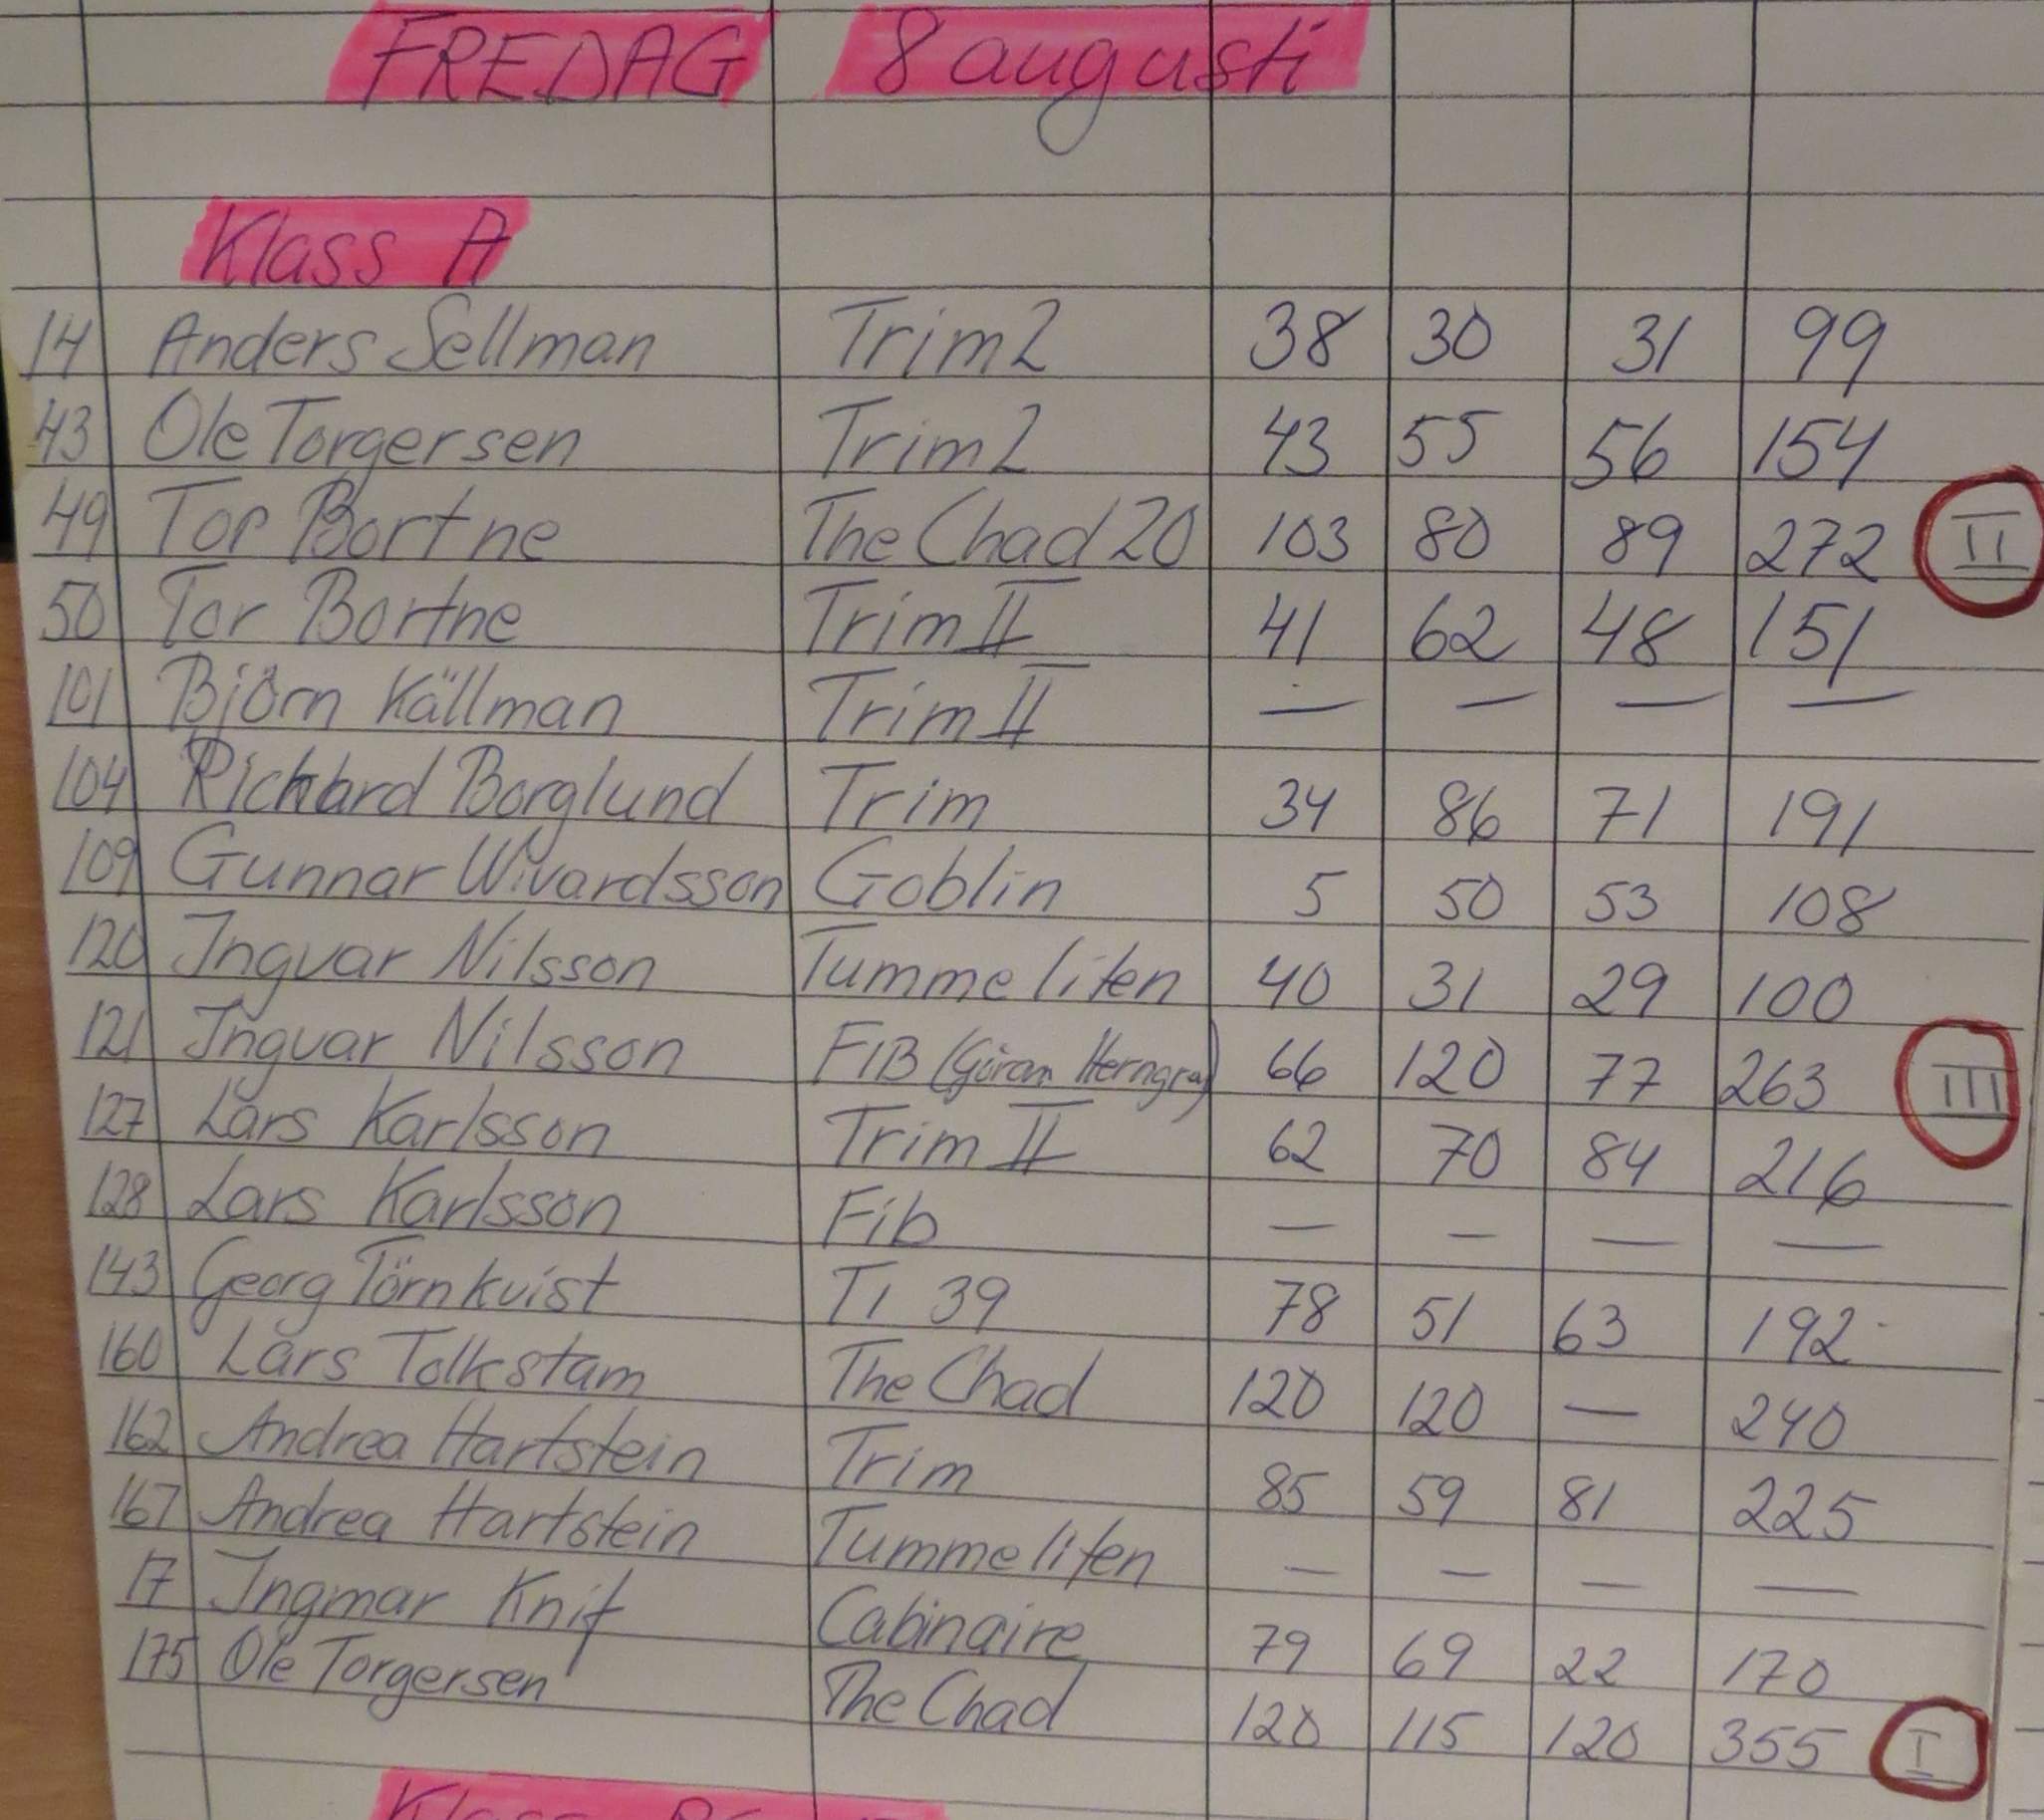 FREDAG 8 augusti
Klass A
14 Anders Sellman Trim 2 38 30 31 99
43 Ole Torgersen Trim 2 43 55 56 154
49 Tor Bortne The Chad 20 103 80 89 272 II
50 Tor Bortne Trim II 41 62 48 151
101 Björn Källman Trim II — — — —
104 Richard Borglund Trim 34 86 71 191
109 Gunnar Wivardsson Goblin 5 50 53 108
120 Ingvar Nilsson Tummeliten 40 31 29 100
121 Ingvar Nilsson FIB (Göran Herngren) 66 120 77 263 III
127 Lars Karlsson Trim II 62 70 84 216
128 Lars Karlsson Fib — — — —
143 Georg Törnkvist T1 39 78 51 63 192
160 Lars Tolkstam The Chad 120 120 — 240
162 Andrea Hartstein Trim 85 59 81 225
167 Andrea Hartstein Tummeliten — — — —
17 Ingmar Knif Cabinaire 79 69 22 170
175 Ole Torgersen The Chad 120 115 120 355 I
Klass